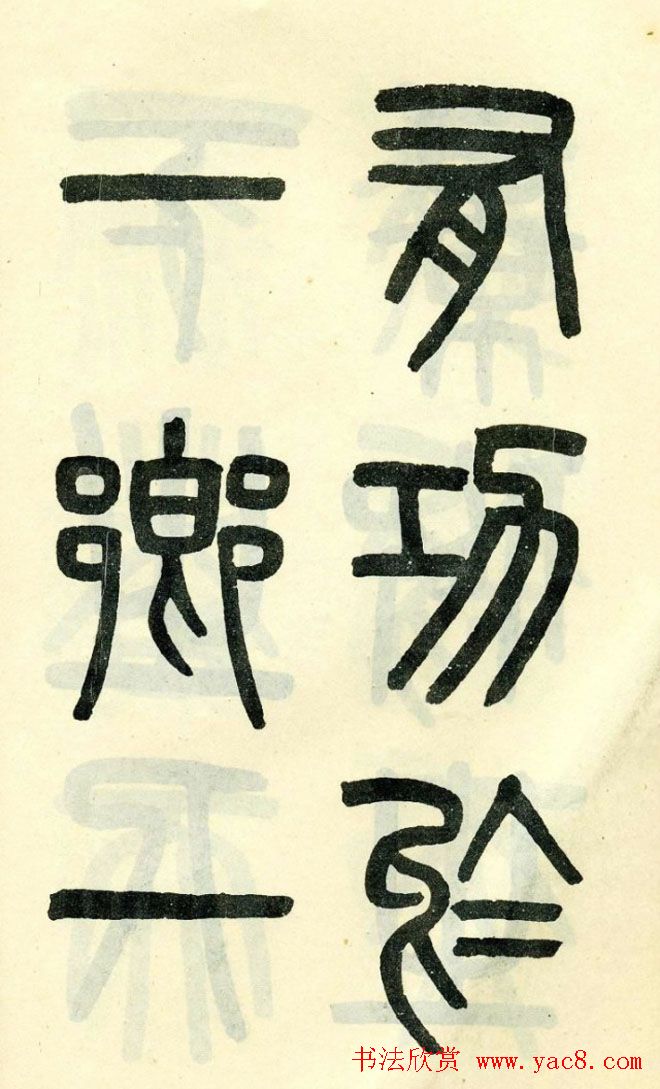 有功於
一鄉一
书法欣赏 www.yac8.com